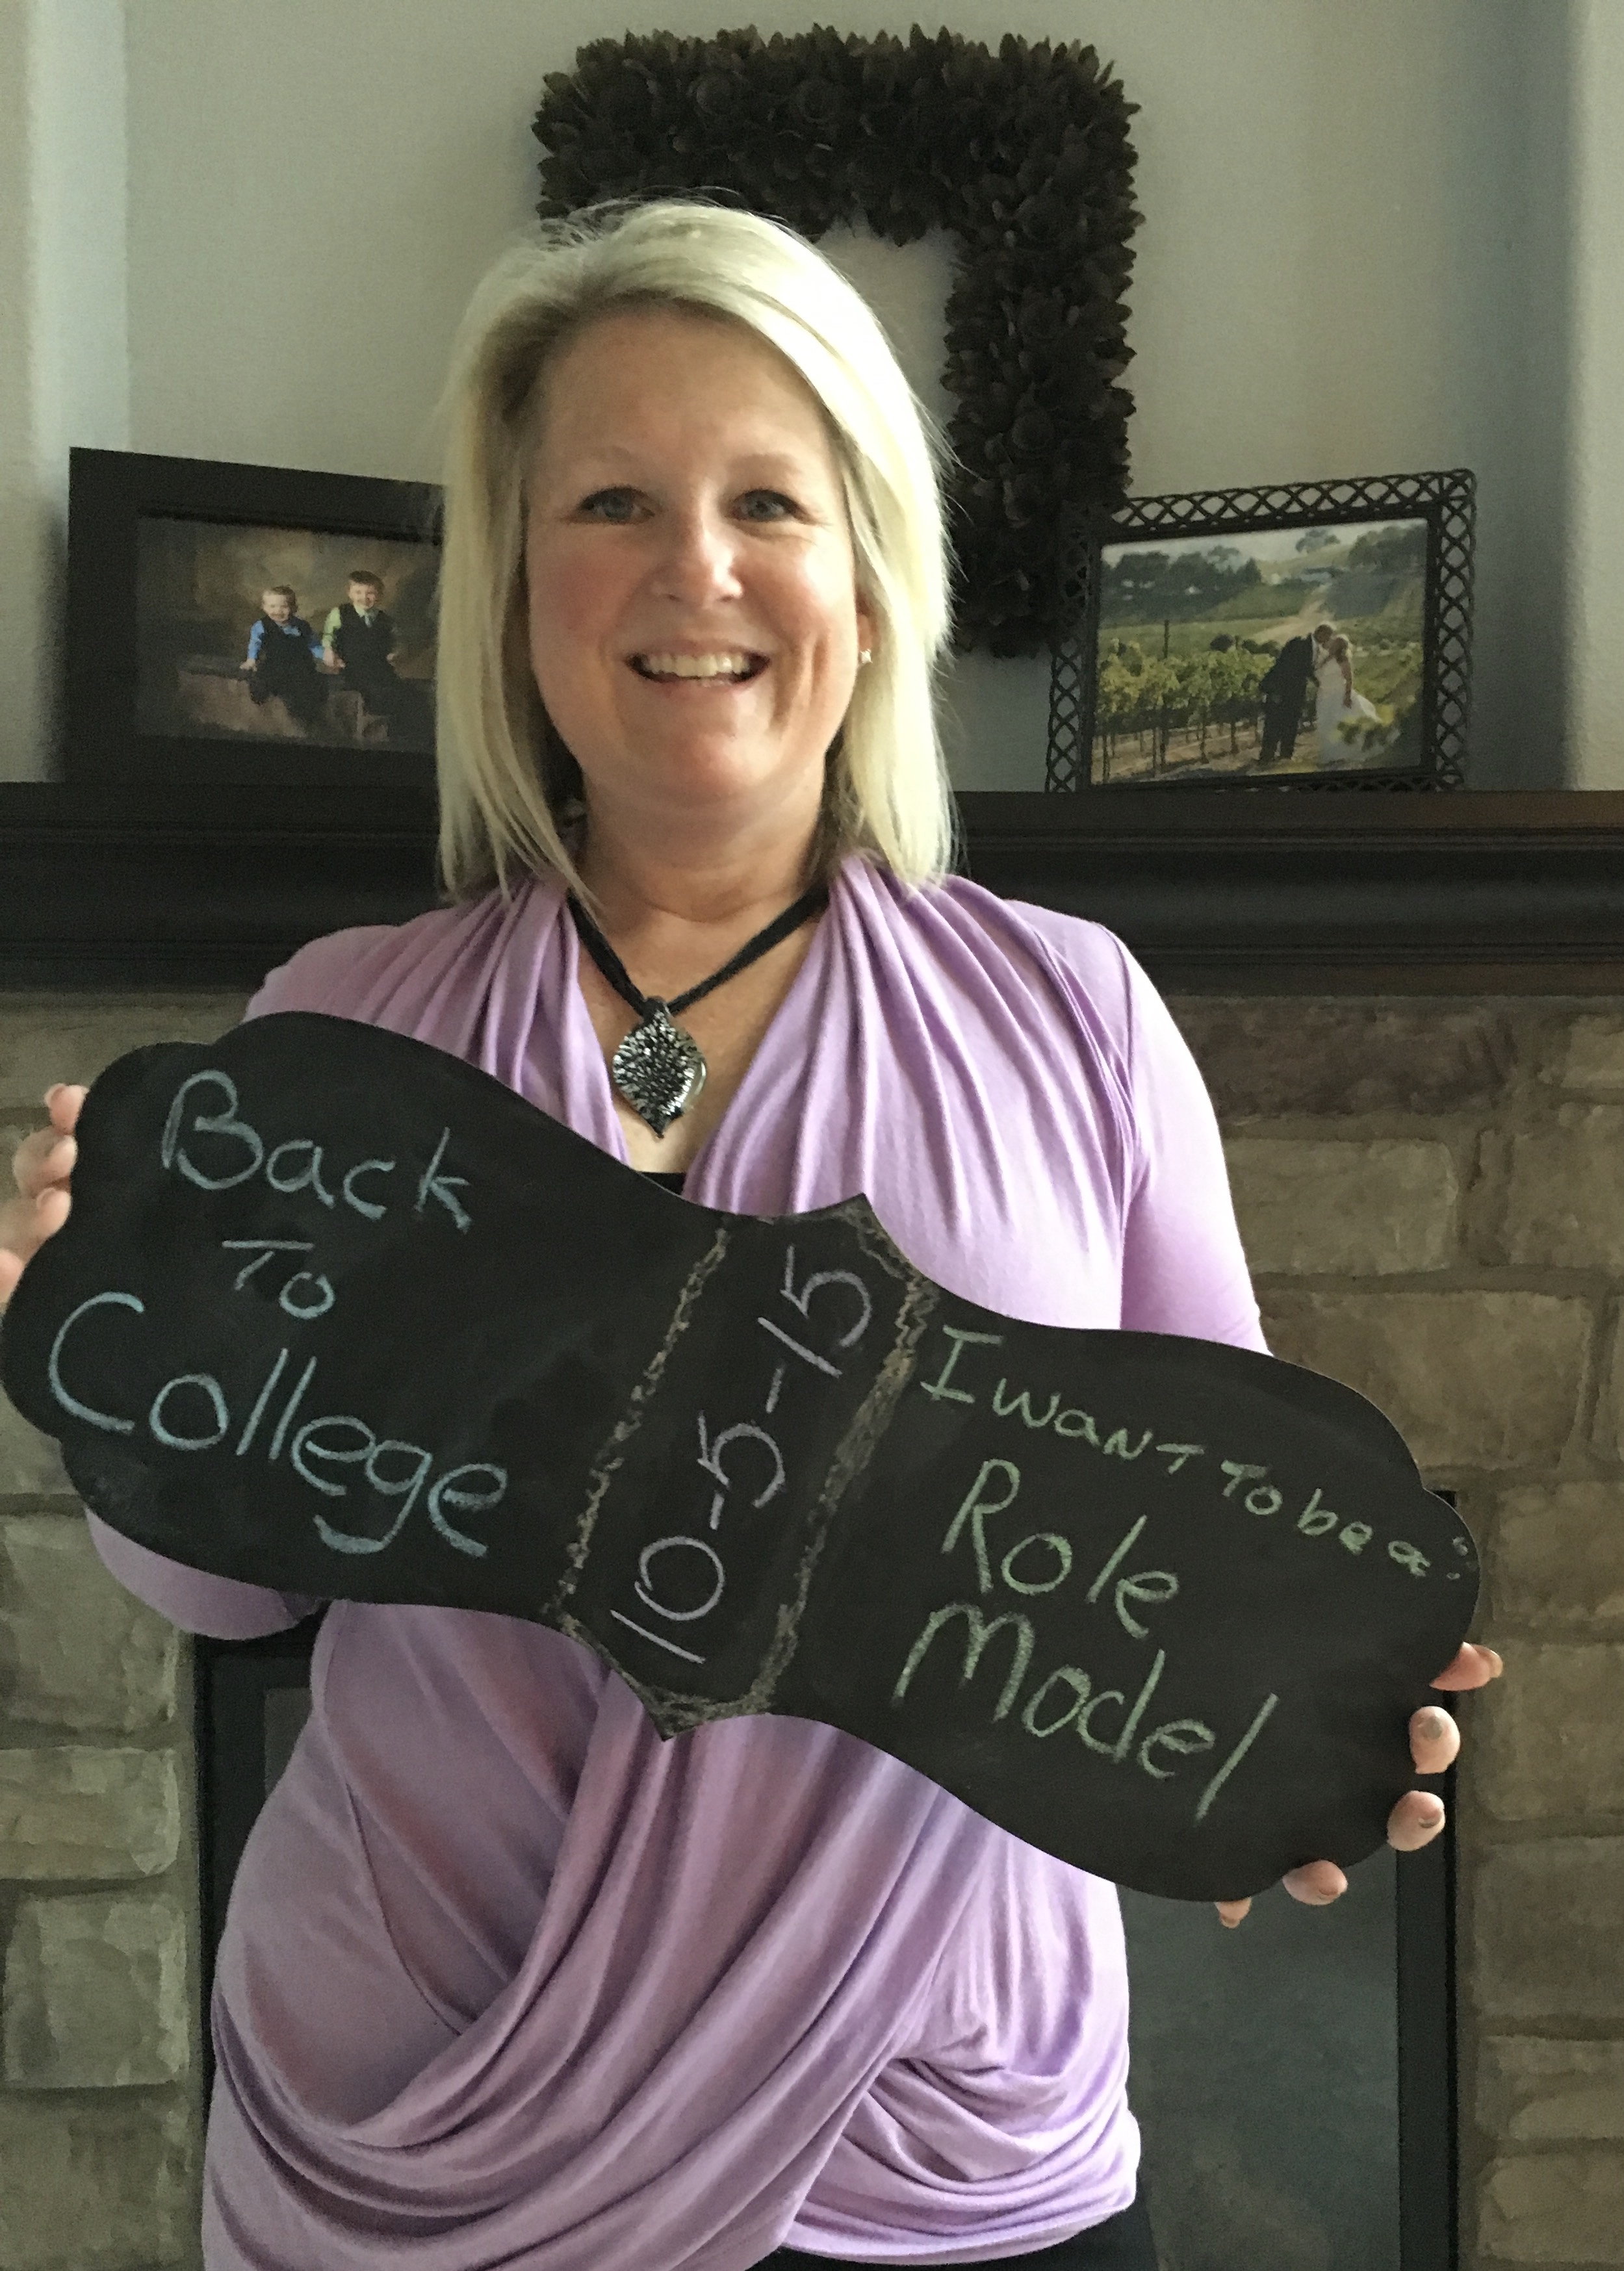 Back
To
College
10-5-15
I want to be a:
Role
Model